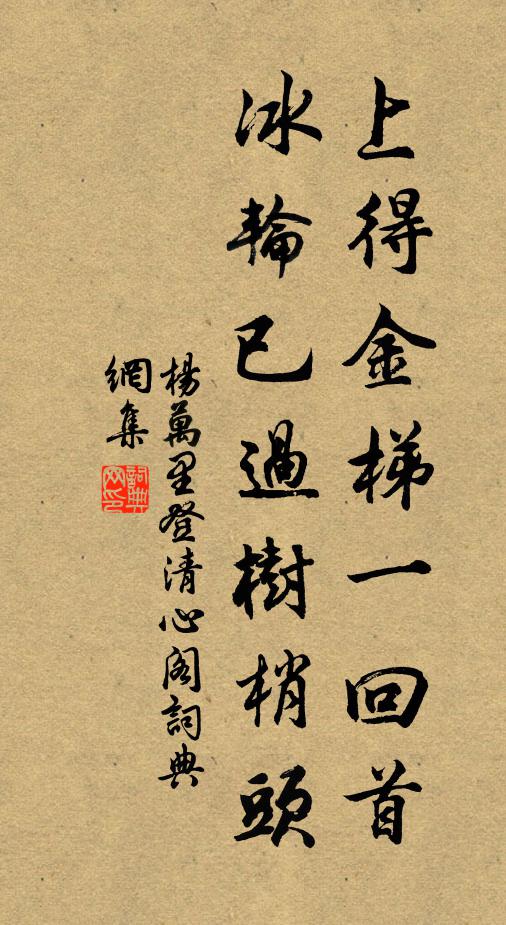 上得金梯一回首
冰輪已過樹梢頭
楊萬里登清心阁詞典
網集
詞典
网印